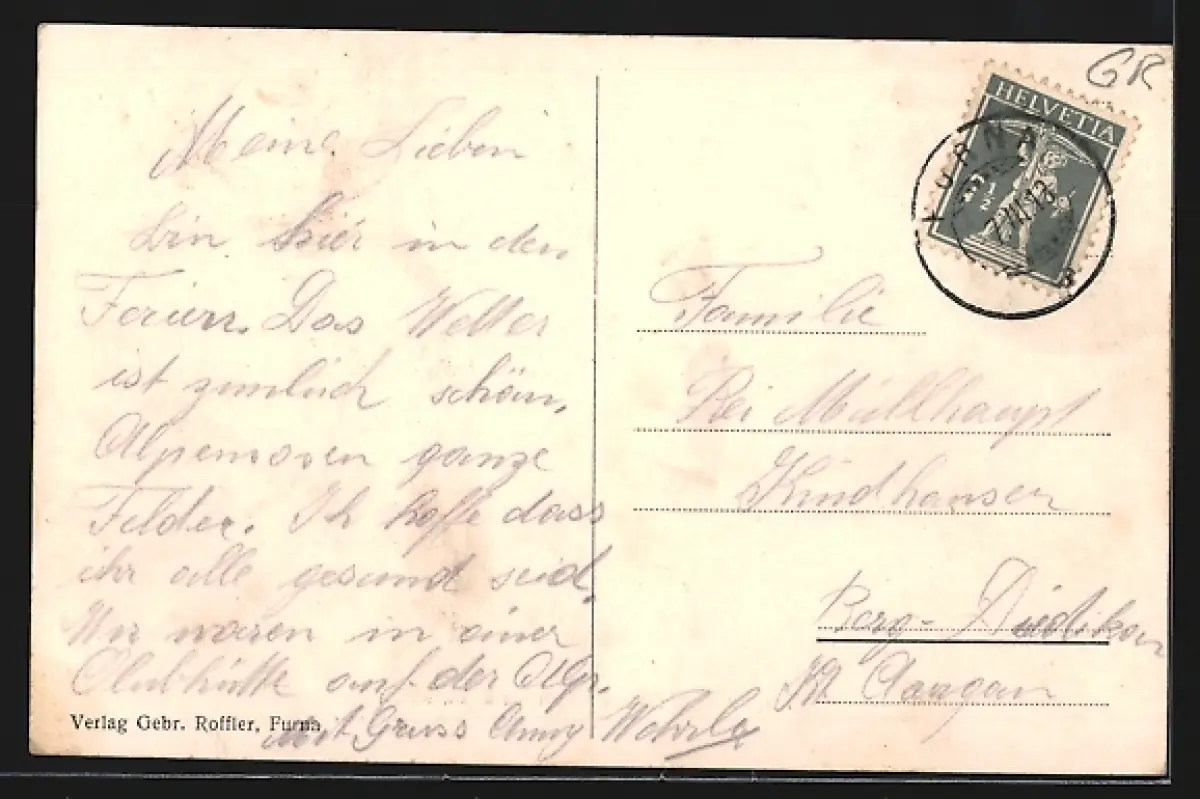 Meine Lieben
bin hier in den
Ferien. Das Wetter
ist zimlich schön,
Alpenrosen ganze
Felder. Ich hoffe dass
ihr alle gesund seid.
Wir waren in einer
Clubhütte auf der Alp.
Mit Gruss Anny Wehrle
Verlag Gebr. Roffler, Furna
GR
HELVETIA
2 1/2
FURNA
Familie
Bei Müllhaupt
Kindhausen
Berg-Dietikon
Kt Aargau